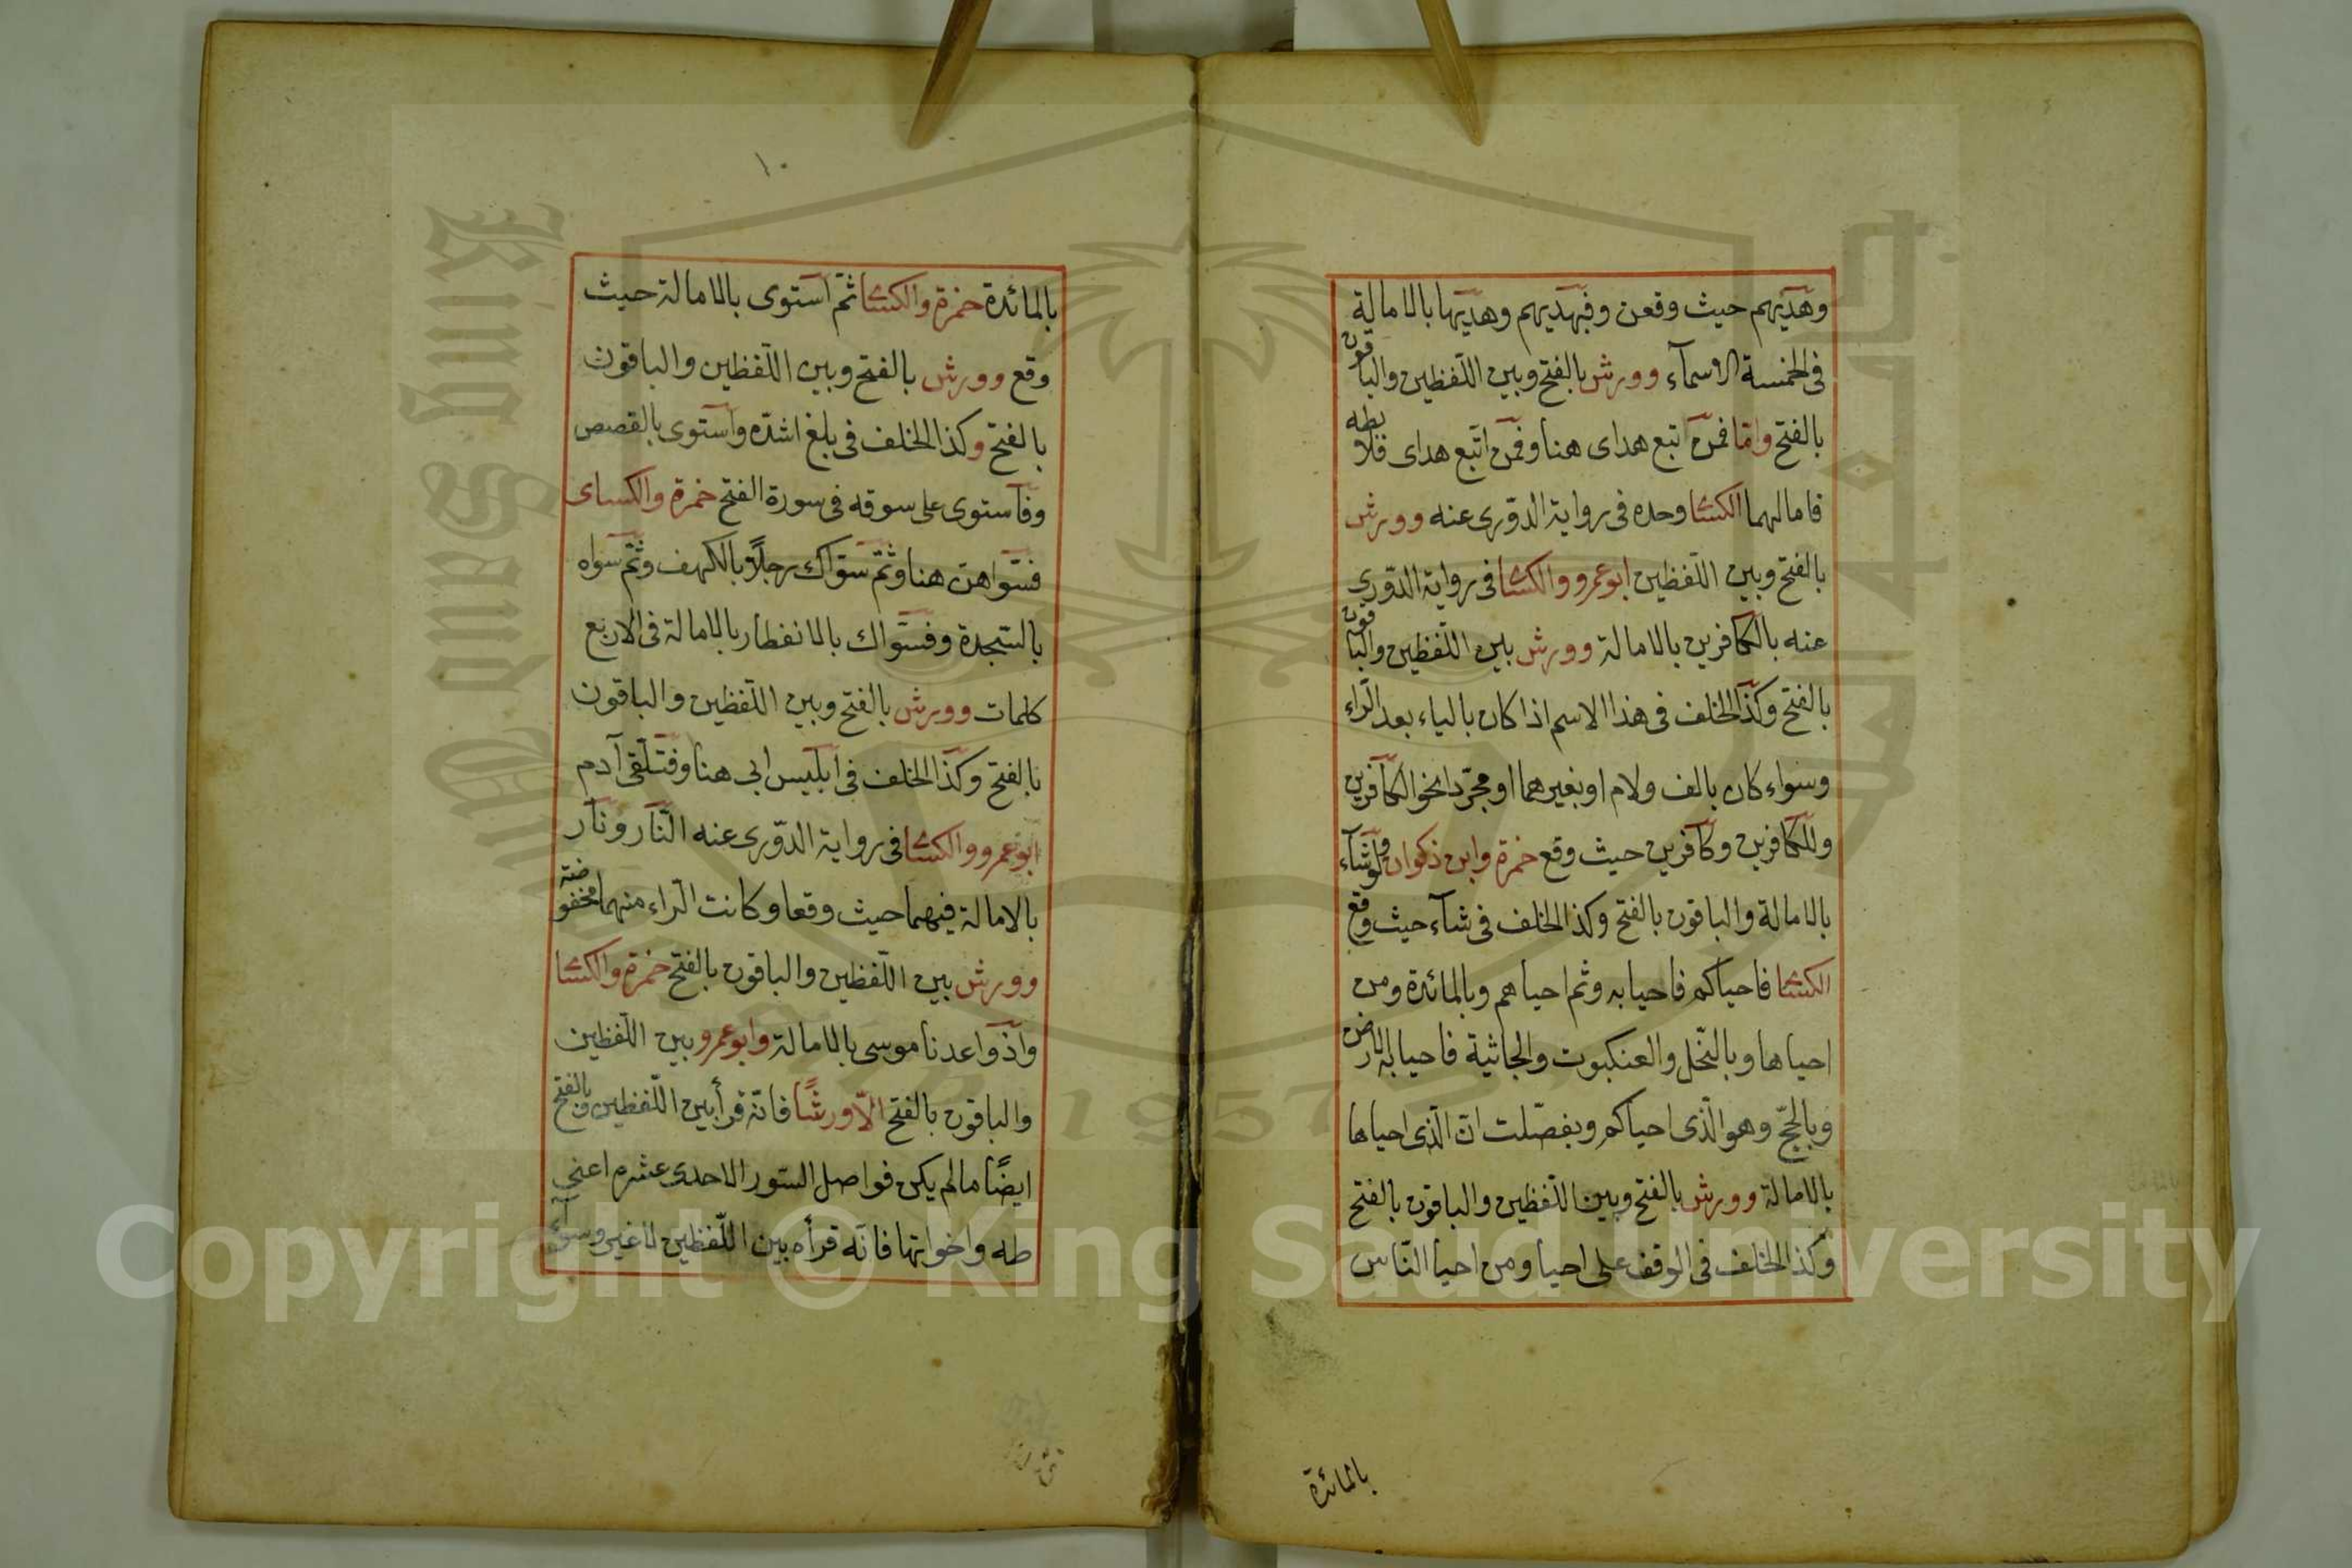 وهديهم حيث وقعن وفبهديهم وهديها بالامالة
فى الخمسة الاسمآء وورش بالفتح وبين اللفظين والباقون
بالفتح وامّا فمن اتبع هداى هنا وفمن اتّبع هداى فلا بطه
فامالهما الكسٓا وحده فى رواية الدّورى عنه وورش
بالفتح وبين اللفظين ابو عمرو والكسٓا فى رواية الدّورى
عنه بالكافرين بالامالة وورش بين اللفظين والباقون
بالفتح وكذا الخلف فى هذا الاسم اذا كان بالياء بعد الرّاء
وسواء كان بالف ولام او بغيرهما او مجرّدا نحو الكافرين
وللكافرين وكافرين حيث وقع حمزة وابن ذكوان ولو شآء
بالامالة والباقون بالفتح وكذا الخلف فى شآء حيث وقع
الكسٓا فاحياكم فاحيا به وثم احياهم وبالمائدة ومن
احياها وبالنّحل والعنكبوت والجاثية فاحيا به الارض
وبالحجّ وهو الّذى احياكم وبفصّلت انّ الّذى احياها
بالامالة وورش بالفتح وبين اللفظين والباقون بالفتح
وكذا الخلف فى الوقف على احيا ومن احيا النّاس
بالمائدة
١٠
بالمائدة حمزة والكسٓا ثمّ استوى بالامالة حيث
وقع وورش بالفتح وبين اللّفظين والباقون
بالفتح وكذا الخلف فى بلغ اشدّه واستوى بالقصص
وفاستوى على سوقه فى سورة الفتح حمزة والكساى
فسّواهن هنا وثمّ سوّاك رجلًا بالكهف وثمّ سوّاه
بالسّجدة وفسّواك بالانفطار بالامالة فى الاربع
كلمات وورش بالفتح وبين اللّفظين والباقون
بالفتح وكذا الخلف فى ابليس ابى هنا وفتلقّى آدم
ابو عمرو والكسٓا فى رواية الدّورى عنه النّار ونار
بالامالة فيهما حيث وقعا وكانت الرّاء منهما مخفوضة
وورش بين اللّفظين والباقون بالفتح حمزة والكسٓا
واذ واعدنا موسى بالامالة وابو عمرو بين اللّفظين
والباقون بالفتح الّا ورشًا فانّه قرأ بين اللّفظين وبالفتح
ايضًا ما لم يكن فواصل السّور الاحدى عشره اعنى
طه واخواتها فانّه قرأه بين اللّفظين لا غير وسوآء
Copyright © King Saud University
King Saud University
1957